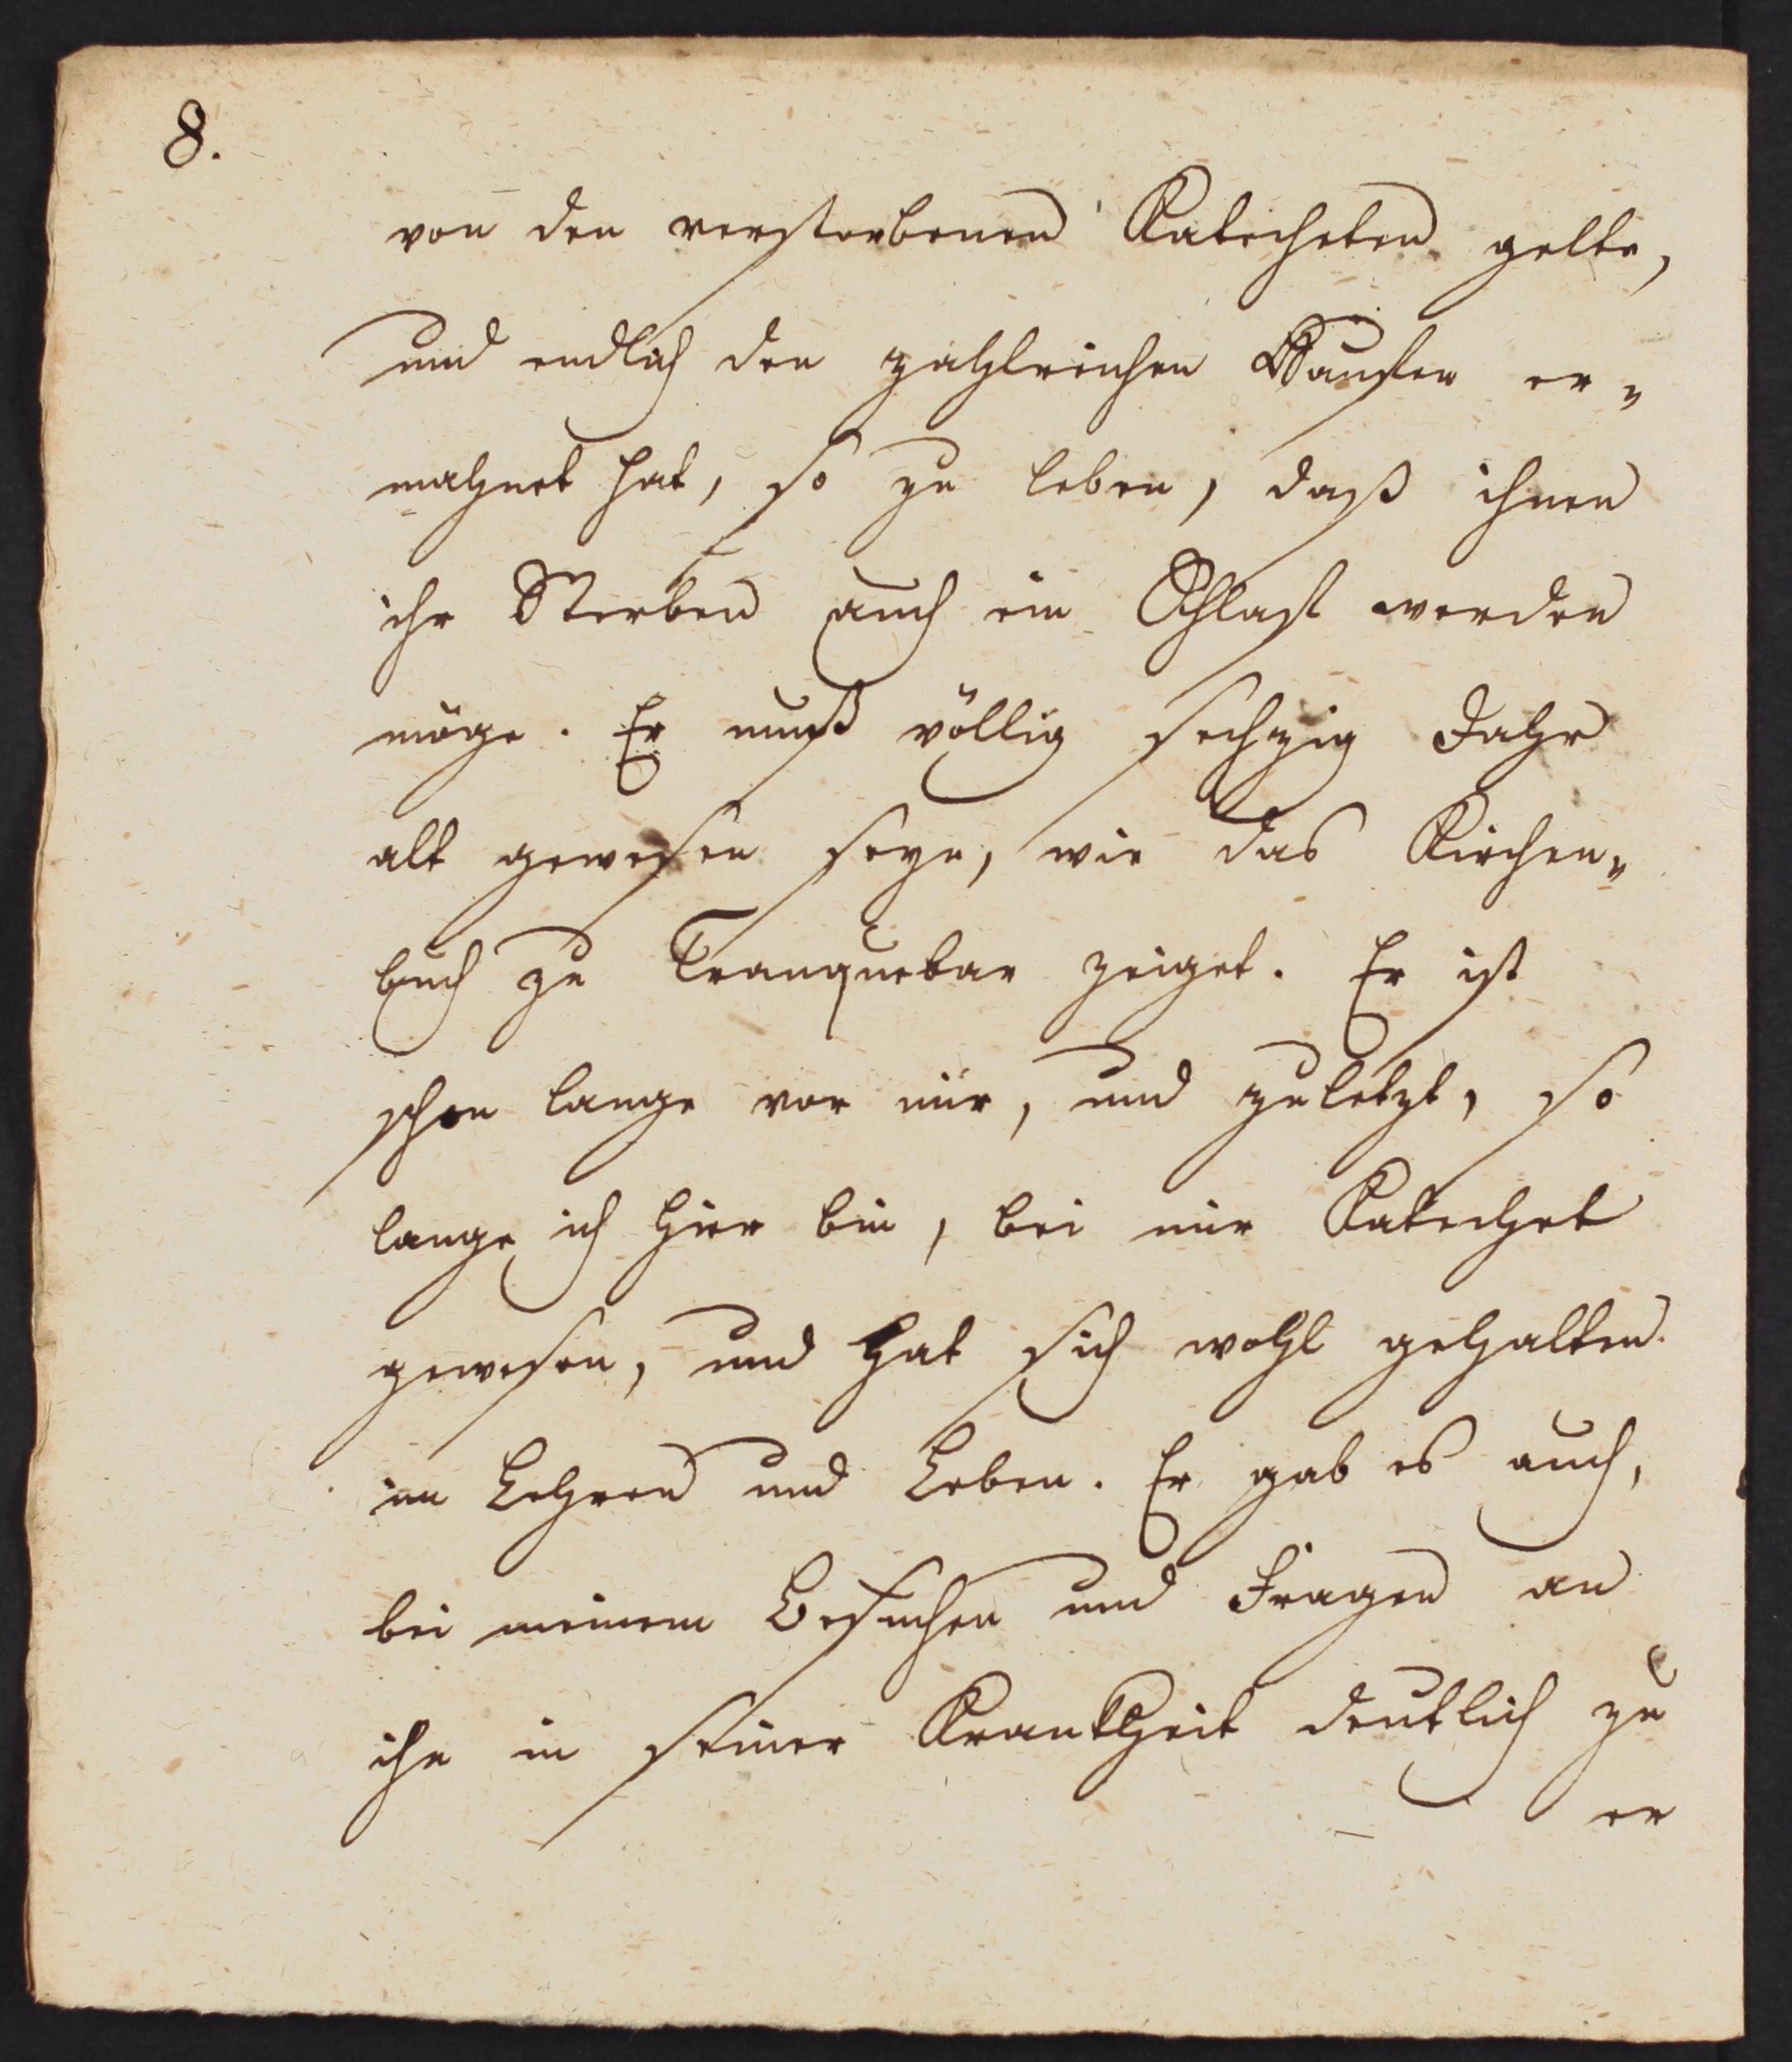 8.
von den verstorbenen Katecheten gelte,
und endlich den zahlreichen Haufen er„
mahnet hat, so zu leben, daß ihnen
ihr Sterben auch ein Schlaf werden
möge. Er muß völlig sechzig Jahr
alt gewesen seyn, wie das Kirchen„
buch zu Tranquebar zeiget. Er ist
schon lange vor mir, und zuletzt, so
lange ich hier bin, bei mir Katechet
gewesen, und hat sich wohl gehalten
im Lehren und Leben. Er gab es auch,
bei meinem Besuchen und Fragen an
ihn in seiner Krankheit deutlich zu
er